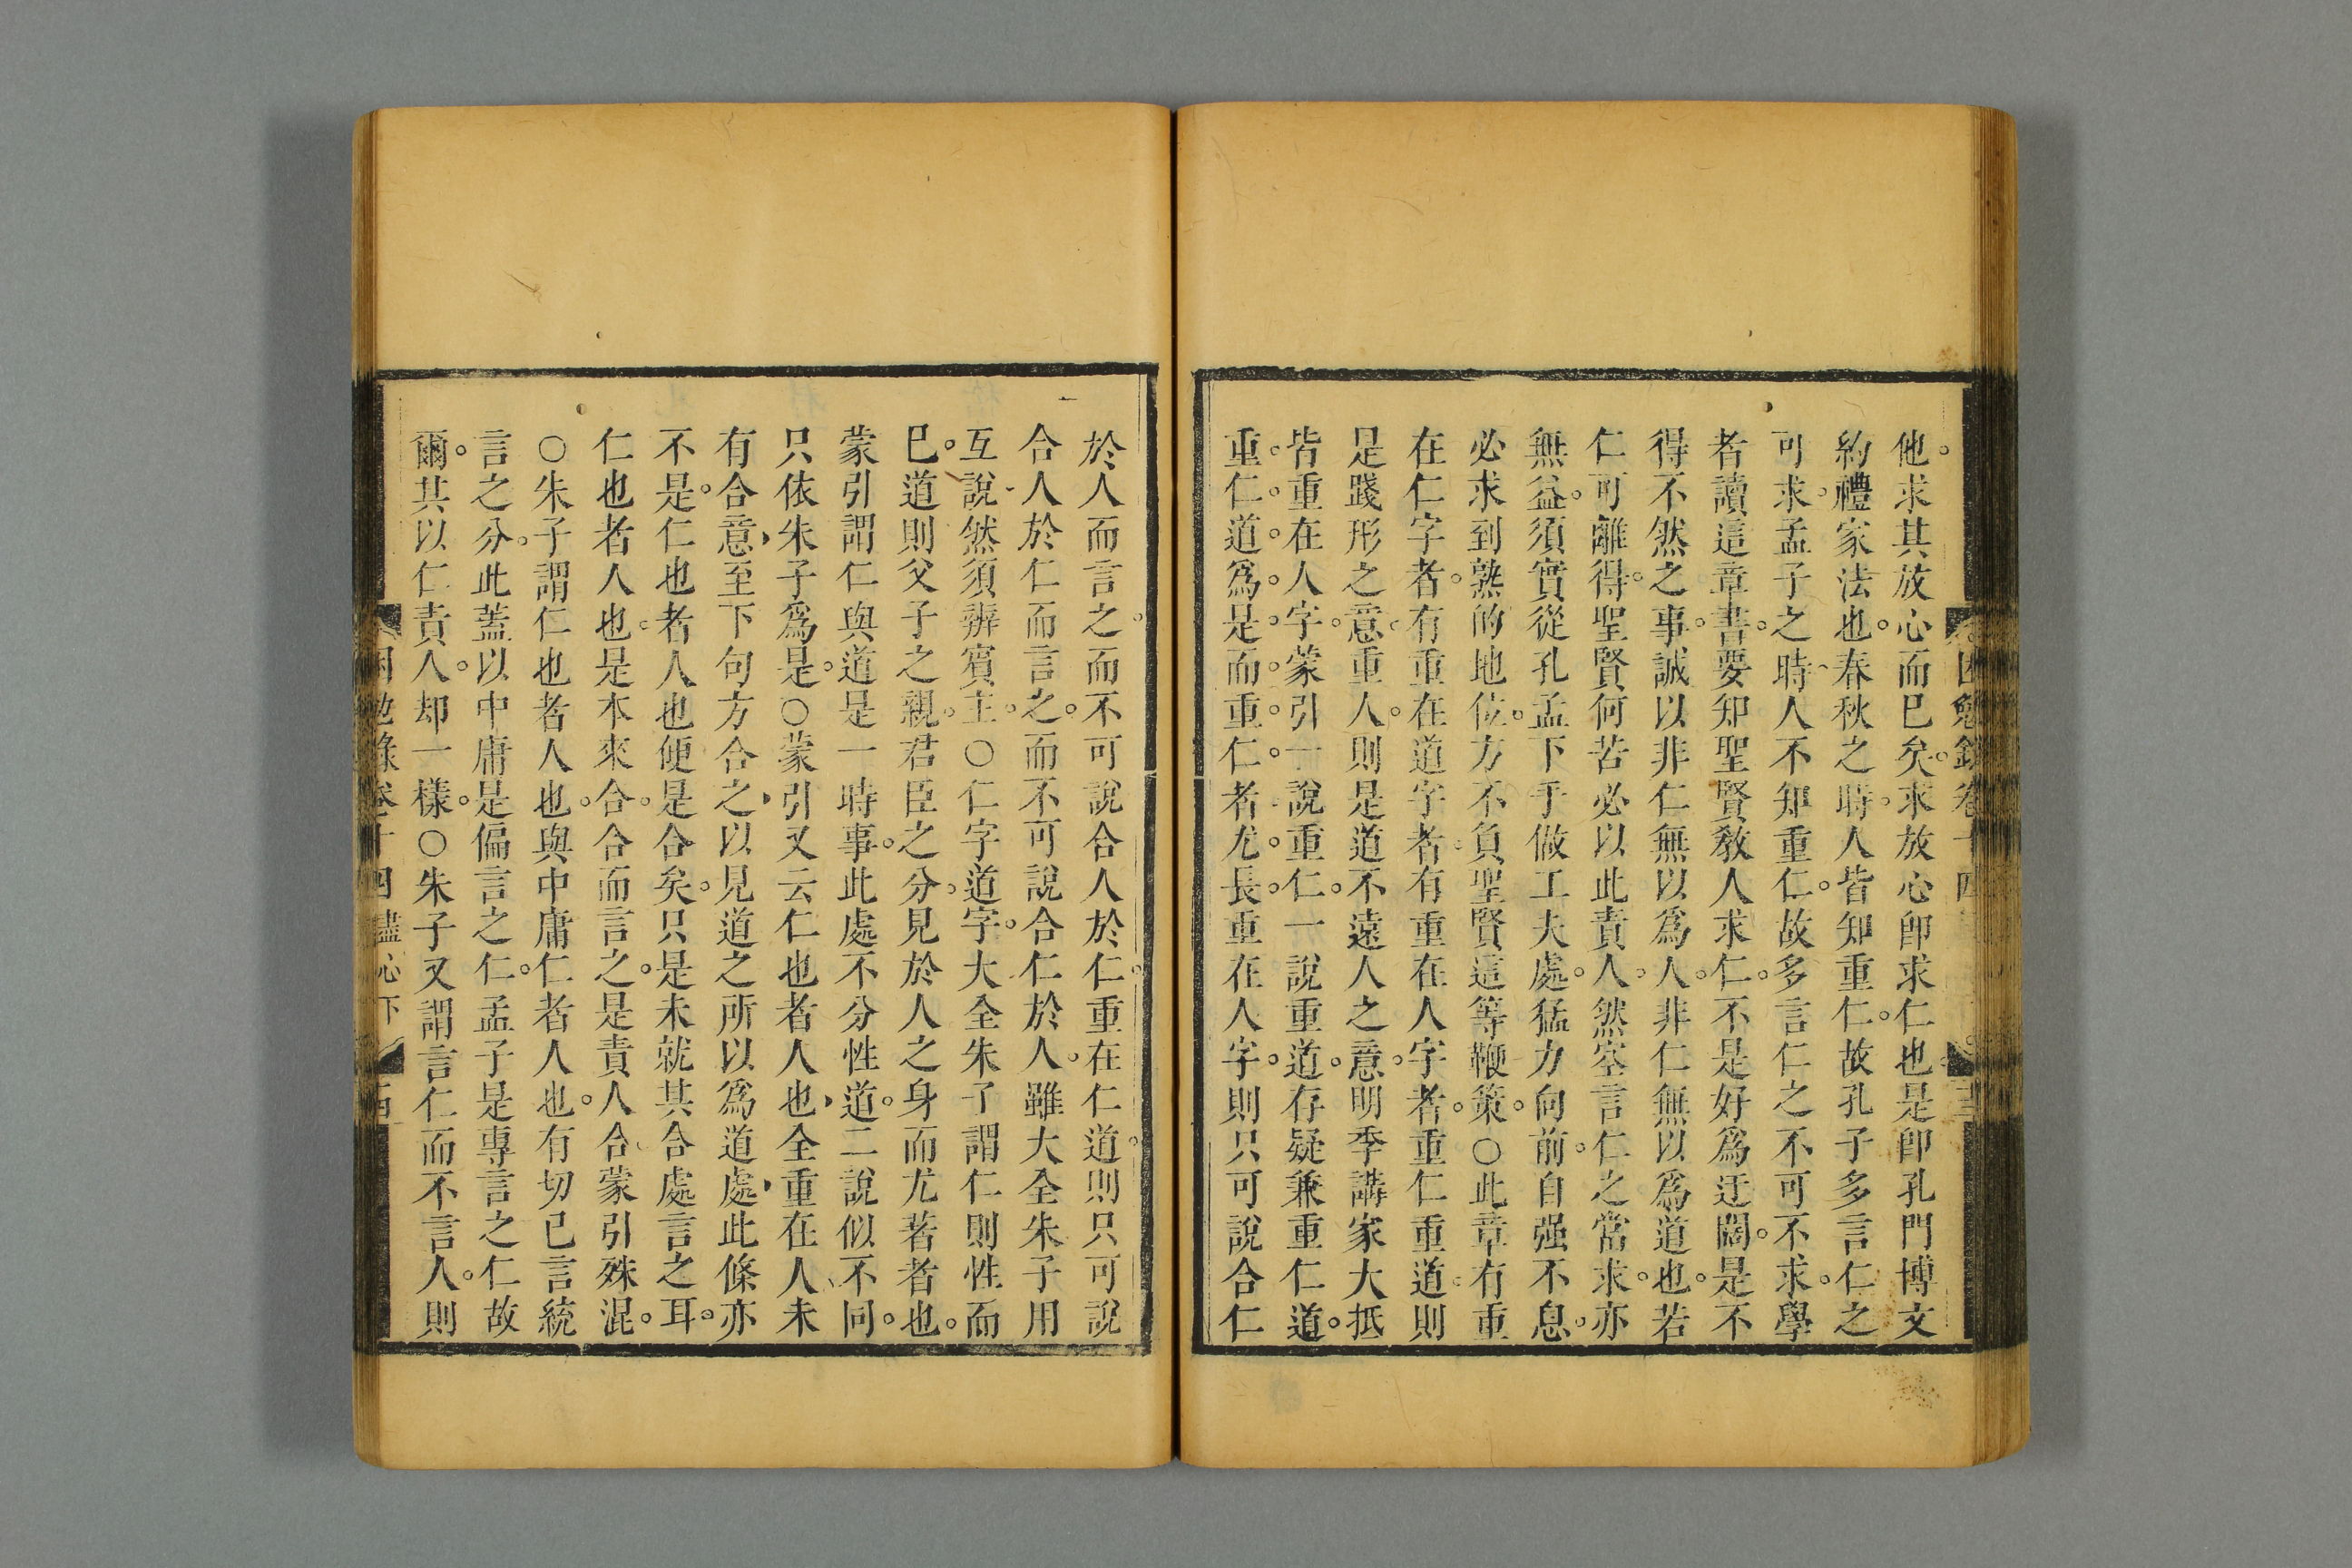 他求其放心而已矣求放心卽求仁也是卽孔門博文
約禮家法也春秋之時人皆知重仁故孔子多言仁之
可求孟子之時人不知重仁故多言仁之不可不求學
者讀這章書要知聖賢敎人求仁不是好爲迂闊是不
得不然之事誠以非仁無以爲人非仁無以爲道也若
仁可離得聖賢何苦必以此責人然空言仁之當求亦
無益須實從孔孟下手做工夫處猛力向前自强不息
必求到熟的地位方不負聖賢這等鞭策○此章有重
在仁字者有重在道字者有重在人字者重仁重道則
是踐形之意重人則是道不遠人之意明季講家大抵
皆重在人字蒙引一說重仁一說重道存疑兼重仁道
重仁道爲是而重仁者尤長重在人字則只可說合仁
於人而言之而不可說合人於仁重在仁道則只可說
合人於仁而言之而不可說合仁於人雖大全朱子用
互說然須辨賓主○仁字道字大全朱子謂仁則性而
已道則父子之親君臣之分見於人之身而尤著者也
蒙引謂仁與道是一時事此處不分性道二說似不同
只依朱子爲是○蒙引又云仁也者人也全重在人未
有合意至下句方合之以見道之所以爲道處此條亦
不是仁也者人也便是合矣只是未就其合處言之耳
仁也者人也是本來合合而言之是責人合蒙引殊混
○朱子謂仁也者人也與中庸仁者人也有切己言統
言之分此蓋以中庸是偏言之仁孟子是專言之仁故
爾其以仁責人却一樣○朱子又謂言仁而不言人則
困勉錄卷十四盡心下